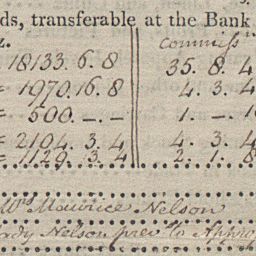 ds, transferable at the Bank
z. commiss
18133.6.8 35.8.4
= 1970.16.8 4.3.4
= 500.-.- 1.-.1
= 2104.3.4 4.3.4
= 1129.3.4 2.1.8
Mrs Maurice Nelson
Lady Nelson prev. to Appro